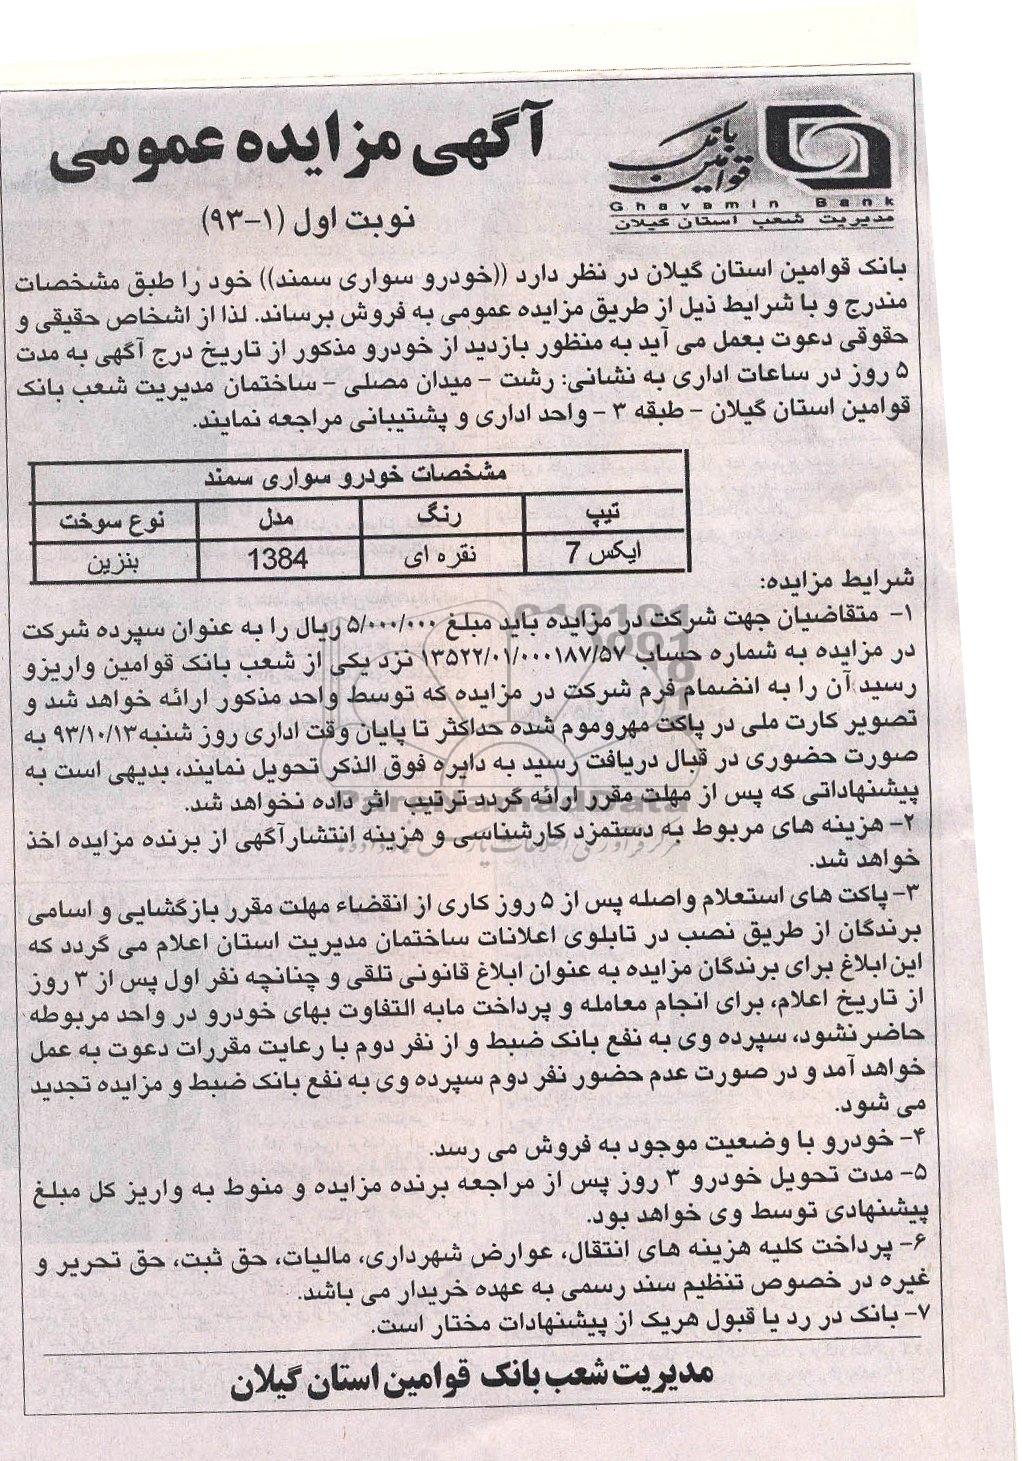 بانک
قوامین
Ghavamin Bank
مدیریت شعب استان گیلان
آگهی مزایده عمومی
نوبت اول (۱-۹۳)
بانک قوامین استان گیلان در نظر دارد ((خودرو سواری سمند)) خود را طبق مشخصات
مندرج و با شرایط ذیل از طریق مزایده عمومی به فروش برساند. لذا از اشخاص حقیقی و
حقوقی دعوت بعمل می آید به منظور بازدید از خودرو مذکور از تاریخ درج آگهی به مدت
۵ روز در ساعات اداری به نشانی: رشت - میدان مصلی - ساختمان مدیریت شعب بانک
قوامین استان گیلان - طبقه ۳ - واحد اداری و پشتیبانی مراجعه نمایند.
مشخصات خودرو سواری سمند
تیپ رنگ مدل نوع سوخت
ایکس 7 نقره ای 1384 بنزین
شرایط مزایده:
۱- متقاضیان جهت شرکت در مزایده باید مبلغ ۵/۰۰۰/۰۰۰ ریال را به عنوان سپرده شرکت
در مزایده به شماره حساب ۱۳۵۲۲/۰۱/۰۰۰۱۸۷/۵۷ نزد یکی از شعب بانک قوامین واریزو
رسید آن را به انضمام فرم شرکت در مزایده که توسط واحد مذکور ارائه خواهد شد و
تصویر کارت ملی در پاکت مهروموم شده حداکثر تا پایان وقت اداری روز شنبه۹۳/۱۰/۱۳ به
صورت حضوری در قبال دریافت رسید به دایره فوق الذکر تحویل نمایند، بدیهی است به
پیشنهاداتی که پس از مهلت مقرر ارائه گردد ترتیب اثر داده نخواهد شد.
۲- هزینه های مربوط به دستمزد کارشناسی و هزینه انتشارآگهی از برنده مزایده اخذ
خواهد شد.
۳- پاکت های استعلام واصله پس از ۵ روز کاری از انقضاء مهلت مقرر بازگشایی و اسامی
برندگان از طریق نصب در تابلوی اعلانات ساختمان مدیریت استان اعلام می گردد که
این ابلاغ برای برندگان مزایده به عنوان ابلاغ قانونی تلقی و چنانچه نفر اول پس از ۳ روز
از تاریخ اعلام، برای انجام معامله و پرداخت مابه التفاوت بهای خودرو در واحد مربوطه
حاضر نشود، سپرده وی به نفع بانک ضبط و از نفر دوم با رعایت مقررات دعوت به عمل
خواهد آمد و در صورت عدم حضور نفر دوم سپرده وی به نفع بانک ضبط و مزایده تجدید
می شود.
۴- خودرو با وضعیت موجود به فروش می رسد.
۵- مدت تحویل خودرو ۳ روز پس از مراجعه برنده مزایده و منوط به واریز کل مبلغ
پیشنهادی توسط وی خواهد بود.
۶- پرداخت کلیه هزینه های انتقال، عوارض شهرداری، مالیات، حق ثبت، حق تحریر و
غیره در خصوص تنظیم سند رسمی به عهده خریدار می باشد.
۷- بانک در رد یا قبول هریک از پیشنهادات مختار است.
مدیریت شعب بانک قوامین استان گیلان